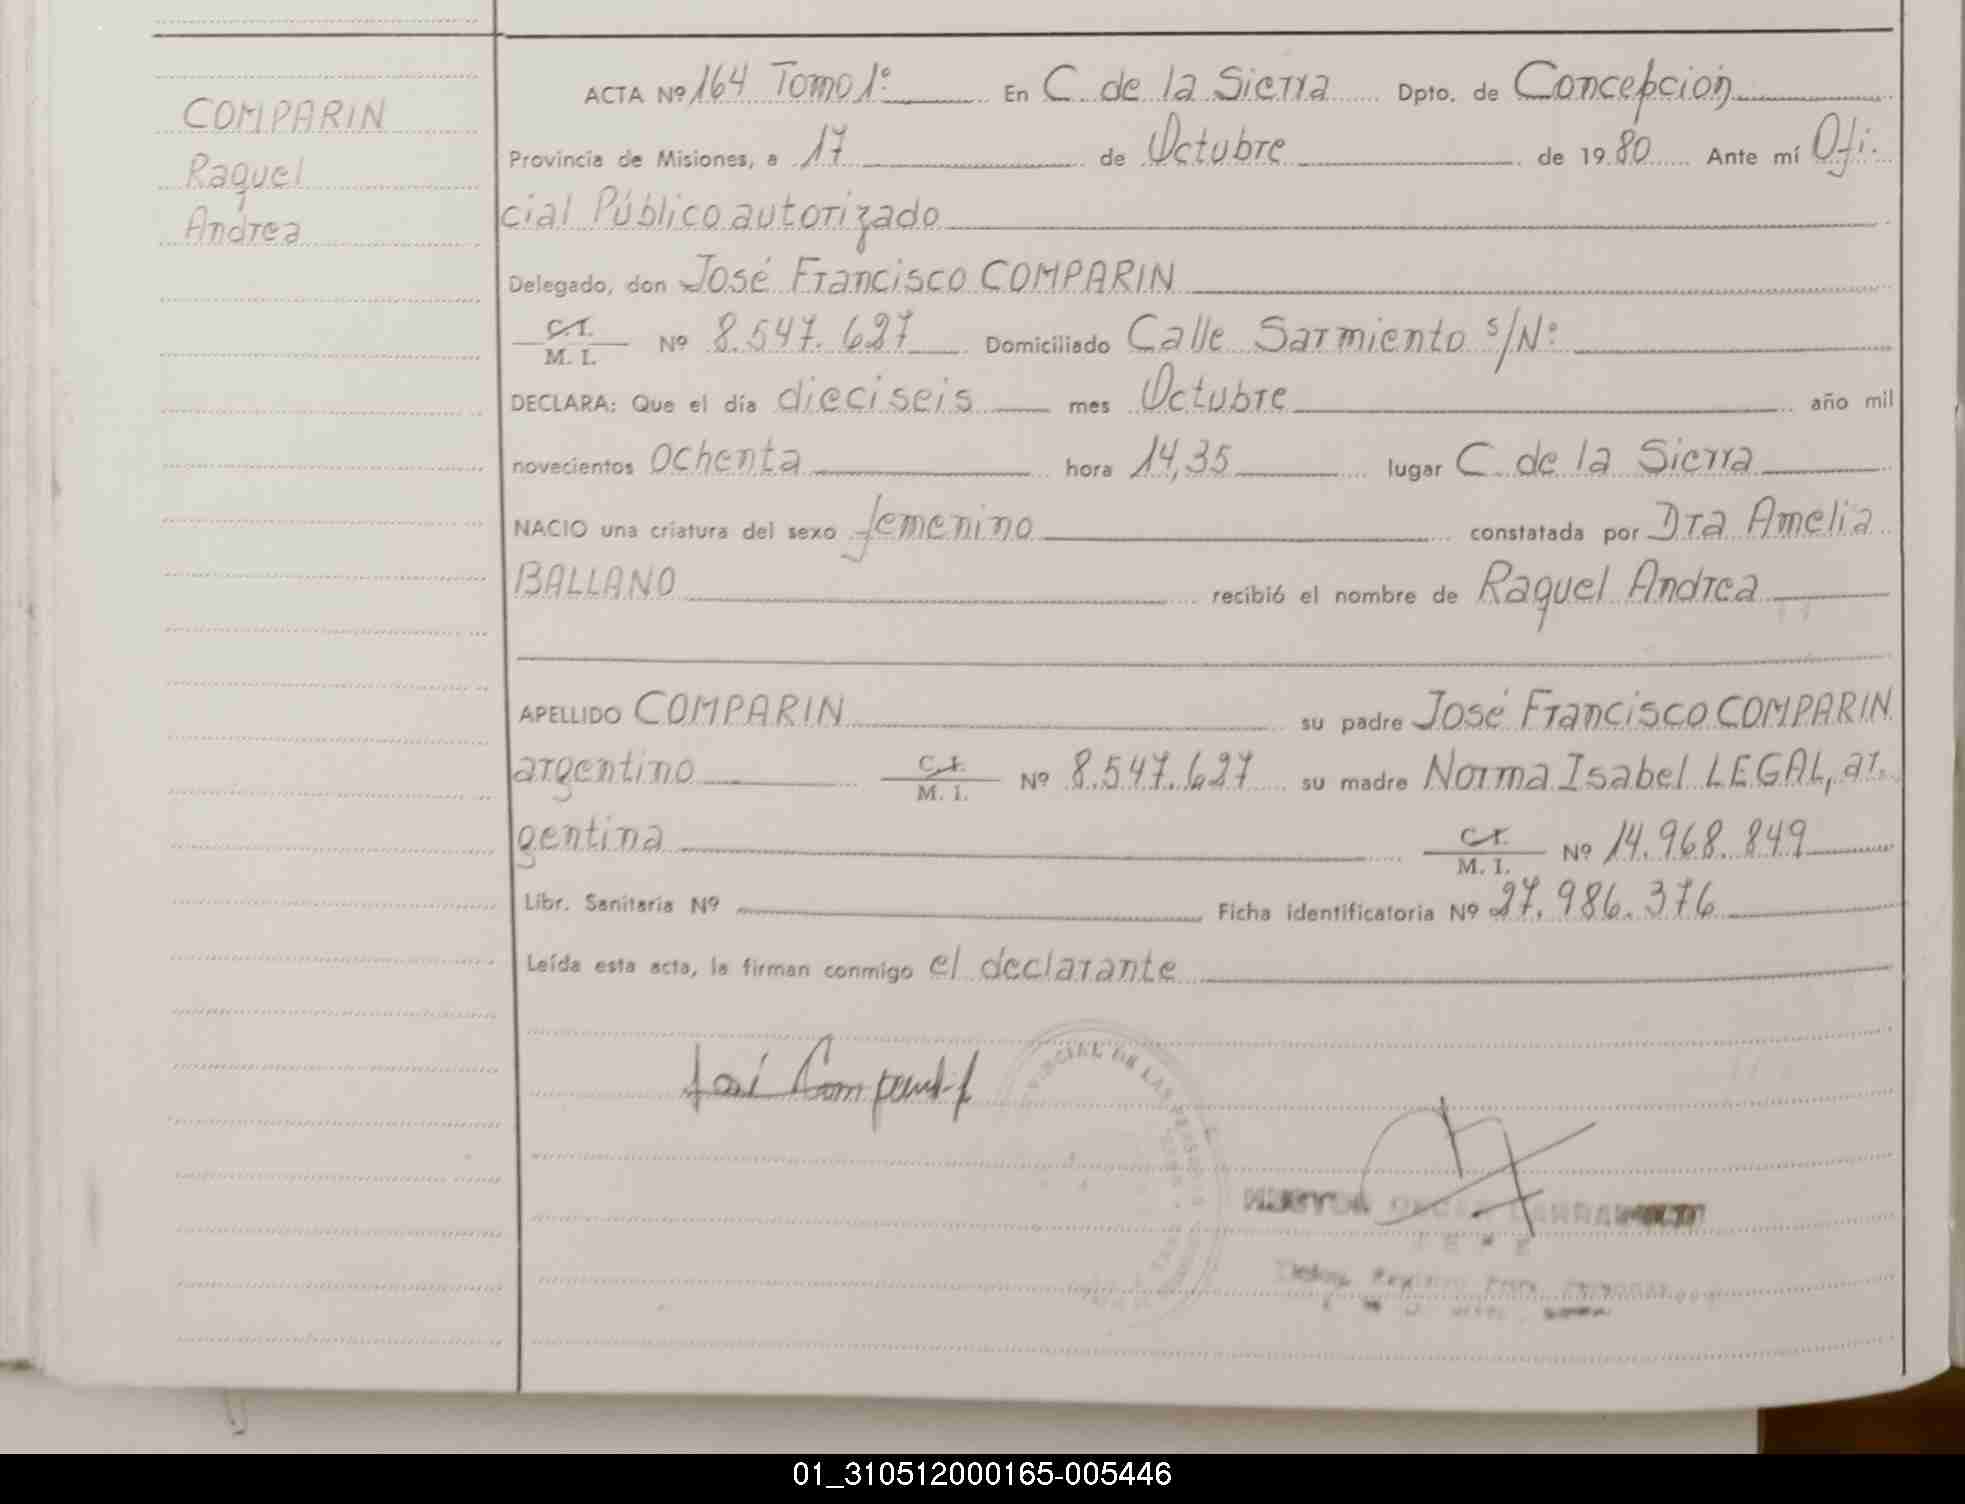 COMPARIN
Raquel
Andrea
ACTA Nº 164 Tomo 1º En C. de la Sierra Dpto. de Concepción
Provincia de Misiones, a 17 de Octubre de 1980 Ante mí Ofi-
cial Público autorizado
Delegado, don José Francisco COMPARIN
C.I.
M. I. Nº 8.547.627 Domiciliado Calle Sarmiento s/Nº
DECLARA: Que el día dieciseis mes Octubre año mil
novecientos ochenta hora 14,35 lugar C. de la Sierra
NACIO una criatura del sexo femenino constatada por Dra Amelia
BALLANO recibió el nombre de Raquel Andrea
APELLIDO COMPARIN su padre José Francisco COMPARIN
argentino C.I. M. I. Nº 8.547.627 su madre Norma Isabel LEGAL, ar-
gentina C.I. M. I. Nº 14.968.849
Libr. Sanitaria Nº Ficha identificatoria Nº 27.986.376
Leída esta acta, la firman conmigo el declarante
José Comparin
VINCIAL DE LAS PERSONAS
JEFE
01_310512000165-005446